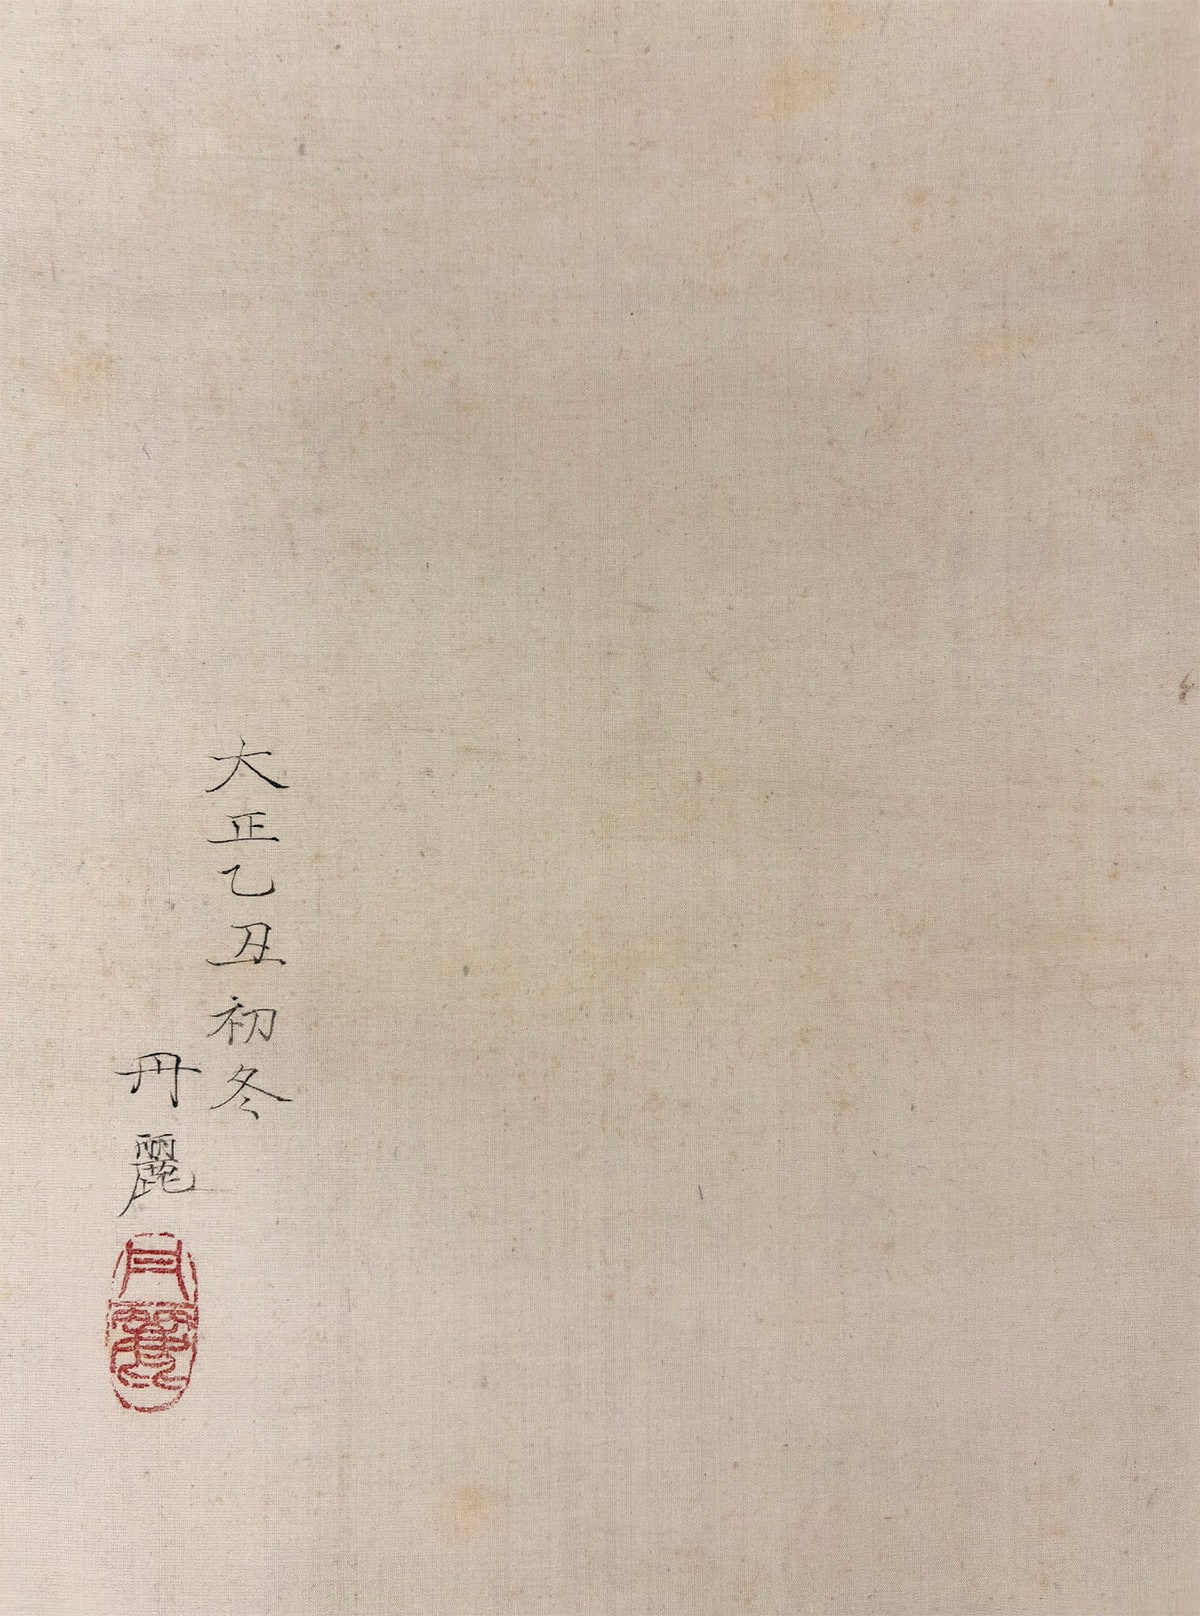 大正乙丑初冬
丹麗
丹麗